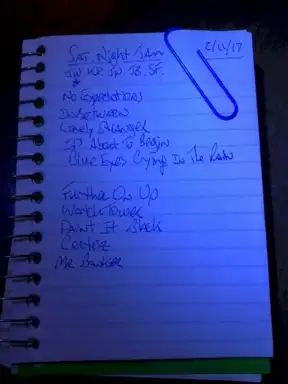 SAT. Night JAM
2/11/17
No Expectations
InBetween
Lonely Stranger
About To Begin
Blue Eyes Crying In The Rain
Further On Up
WatchTower
Paint It Black
Cortez
Mr Banker